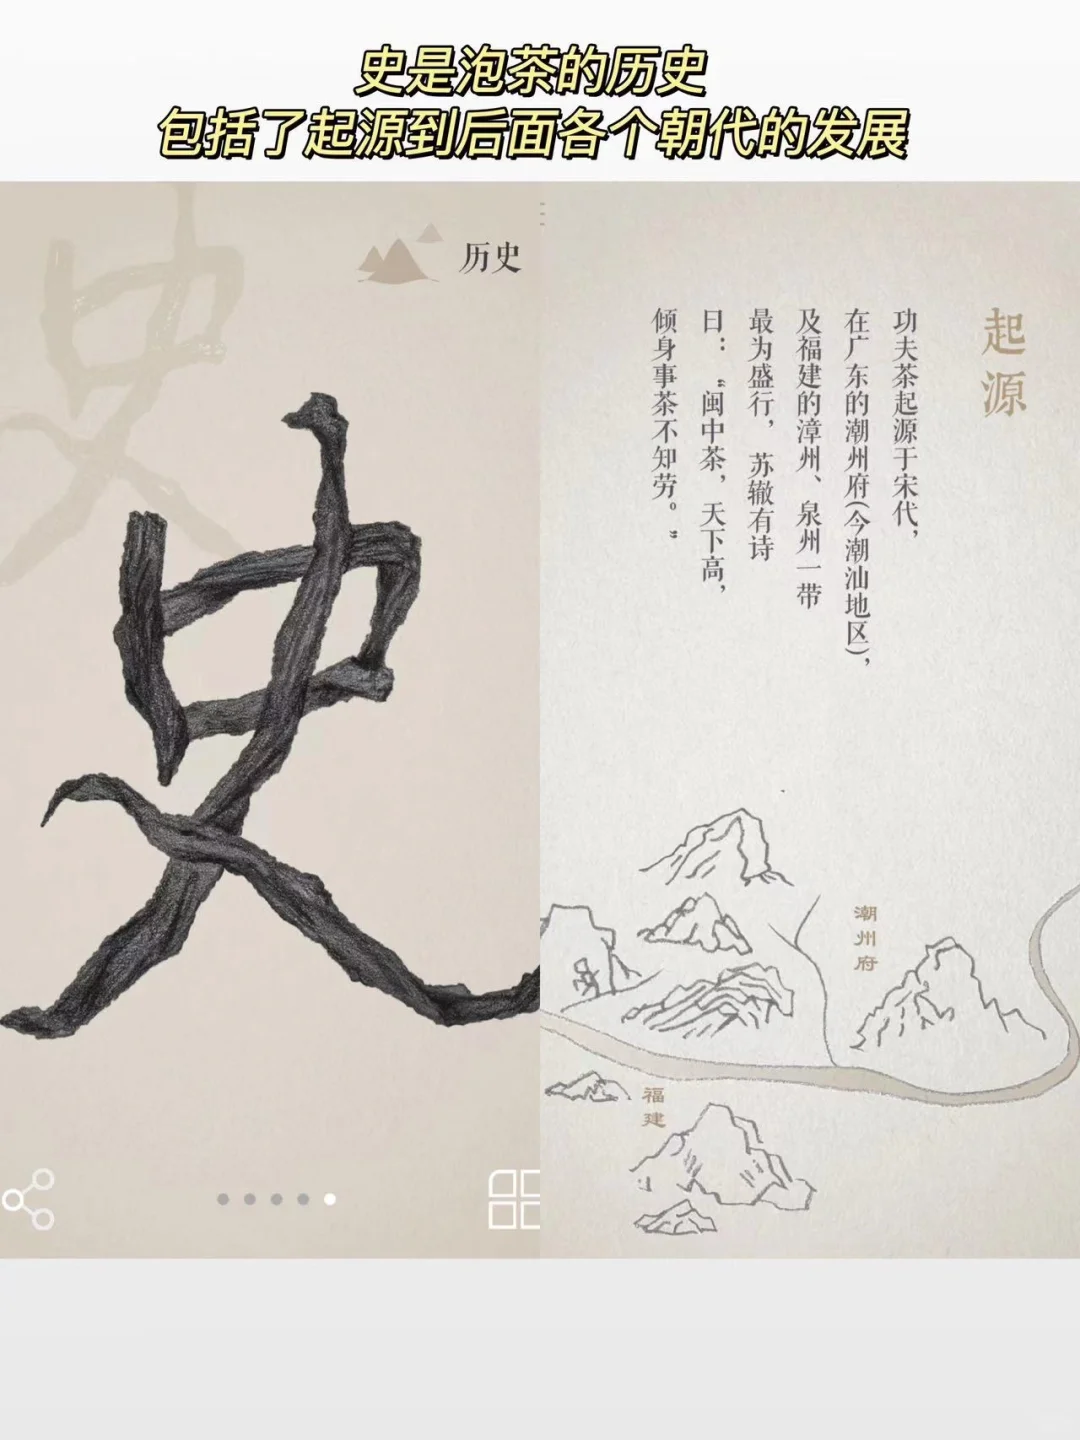 史是泡茶的历史
包括了起源到后面各个朝代的发展
史
历史
史
起源
功夫茶起源于宋代，
在广东的潮州府(今潮汕地区)，
及福建的漳州、泉州一带
最为盛行，苏辙有诗
曰：“闽中茶，天下高，
倾身事茶不知劳。”
潮州府
福建